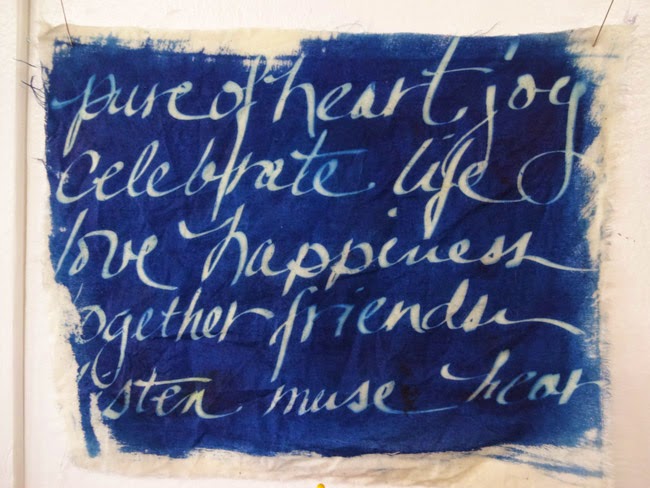 pure of heart joy
celebrate life
love happiness
together friends
listen muse hear